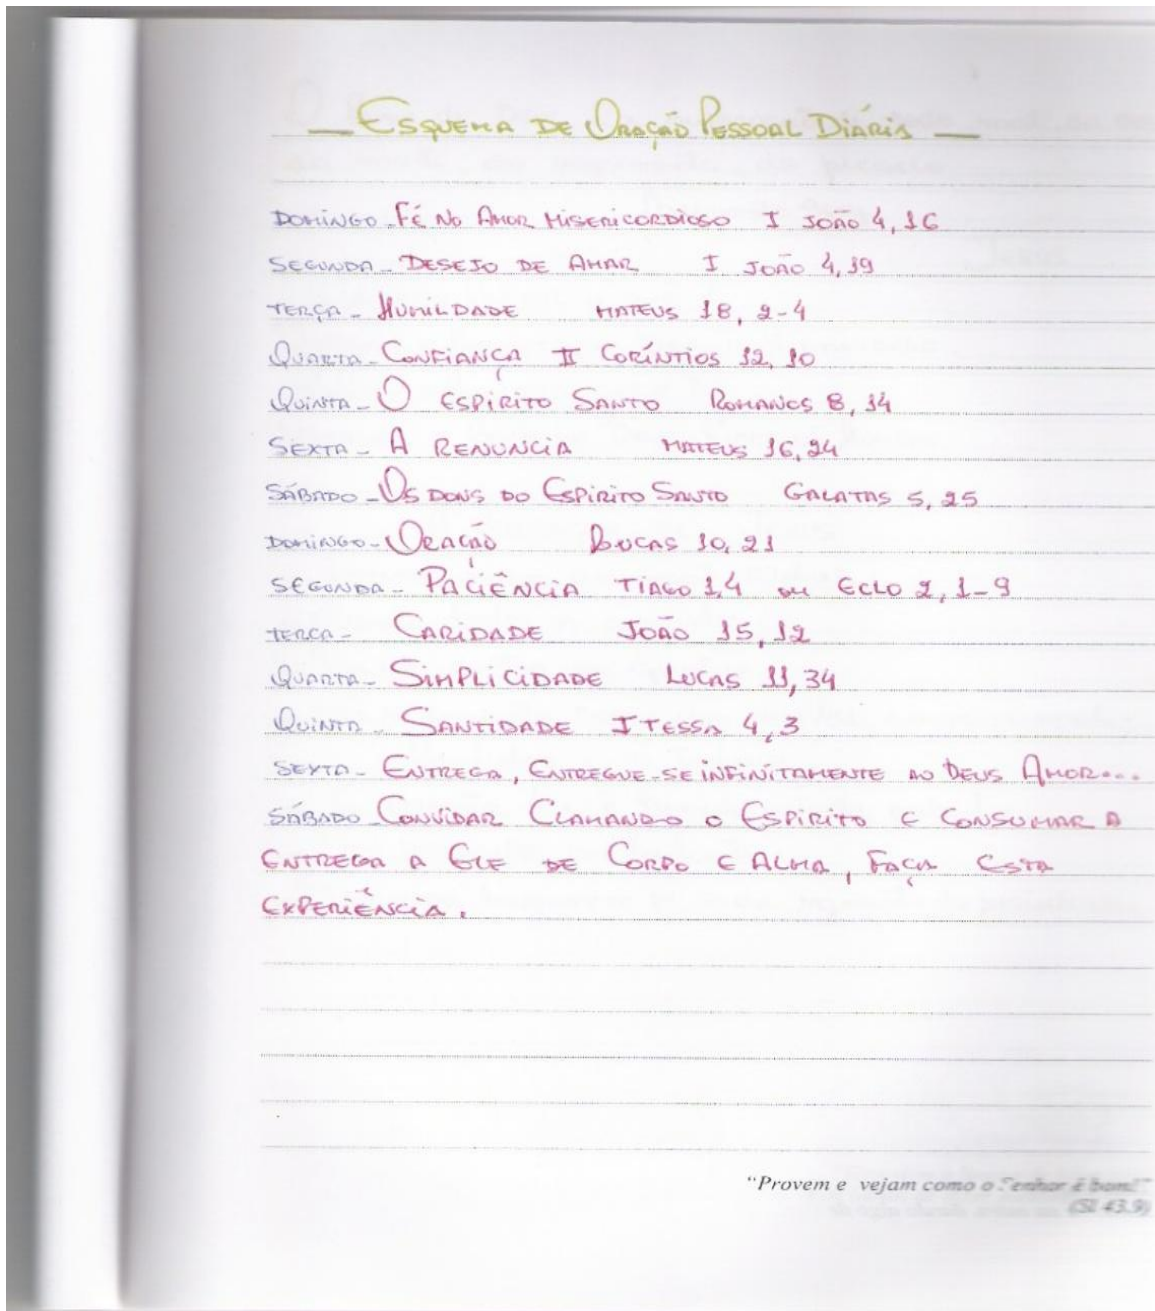 — Esquema de Oração Pessoal Diária —
Domingo - Fé no Amor Misericordioso I João 4, 16
Segunda - Desejo de Amar I João 4, 19
Terça - Humildade Mateus 18, 2-4
Quarta - Confiança II Coríntios 12, 10
Quinta - O Espírito Santo Romanos 8, 14
Sexta - A Renúncia Mateus 16, 24
Sábado - Os Dons do Espírito Santo Galatas 5, 25
Domingo - Oração Lucas 10, 21
Segunda - Paciência Tiago 1,4 ou Eclo 2, 1-9
Terça - Caridade João 15, 12
Quarta - Simplicidade Lucas 11, 34
Quinta - Santidade I Tessa 4, 3
Sexta - Entrega, Entregue-se infinitamente ao Deus Amor...
Sábado Convidar Clamando o Espírito e consumar a
entrega a Ele de Corpo e Alma, Faça esta
experiência.
"Provem e vejam como o Senhor é bom!"
(Sl 43.9)